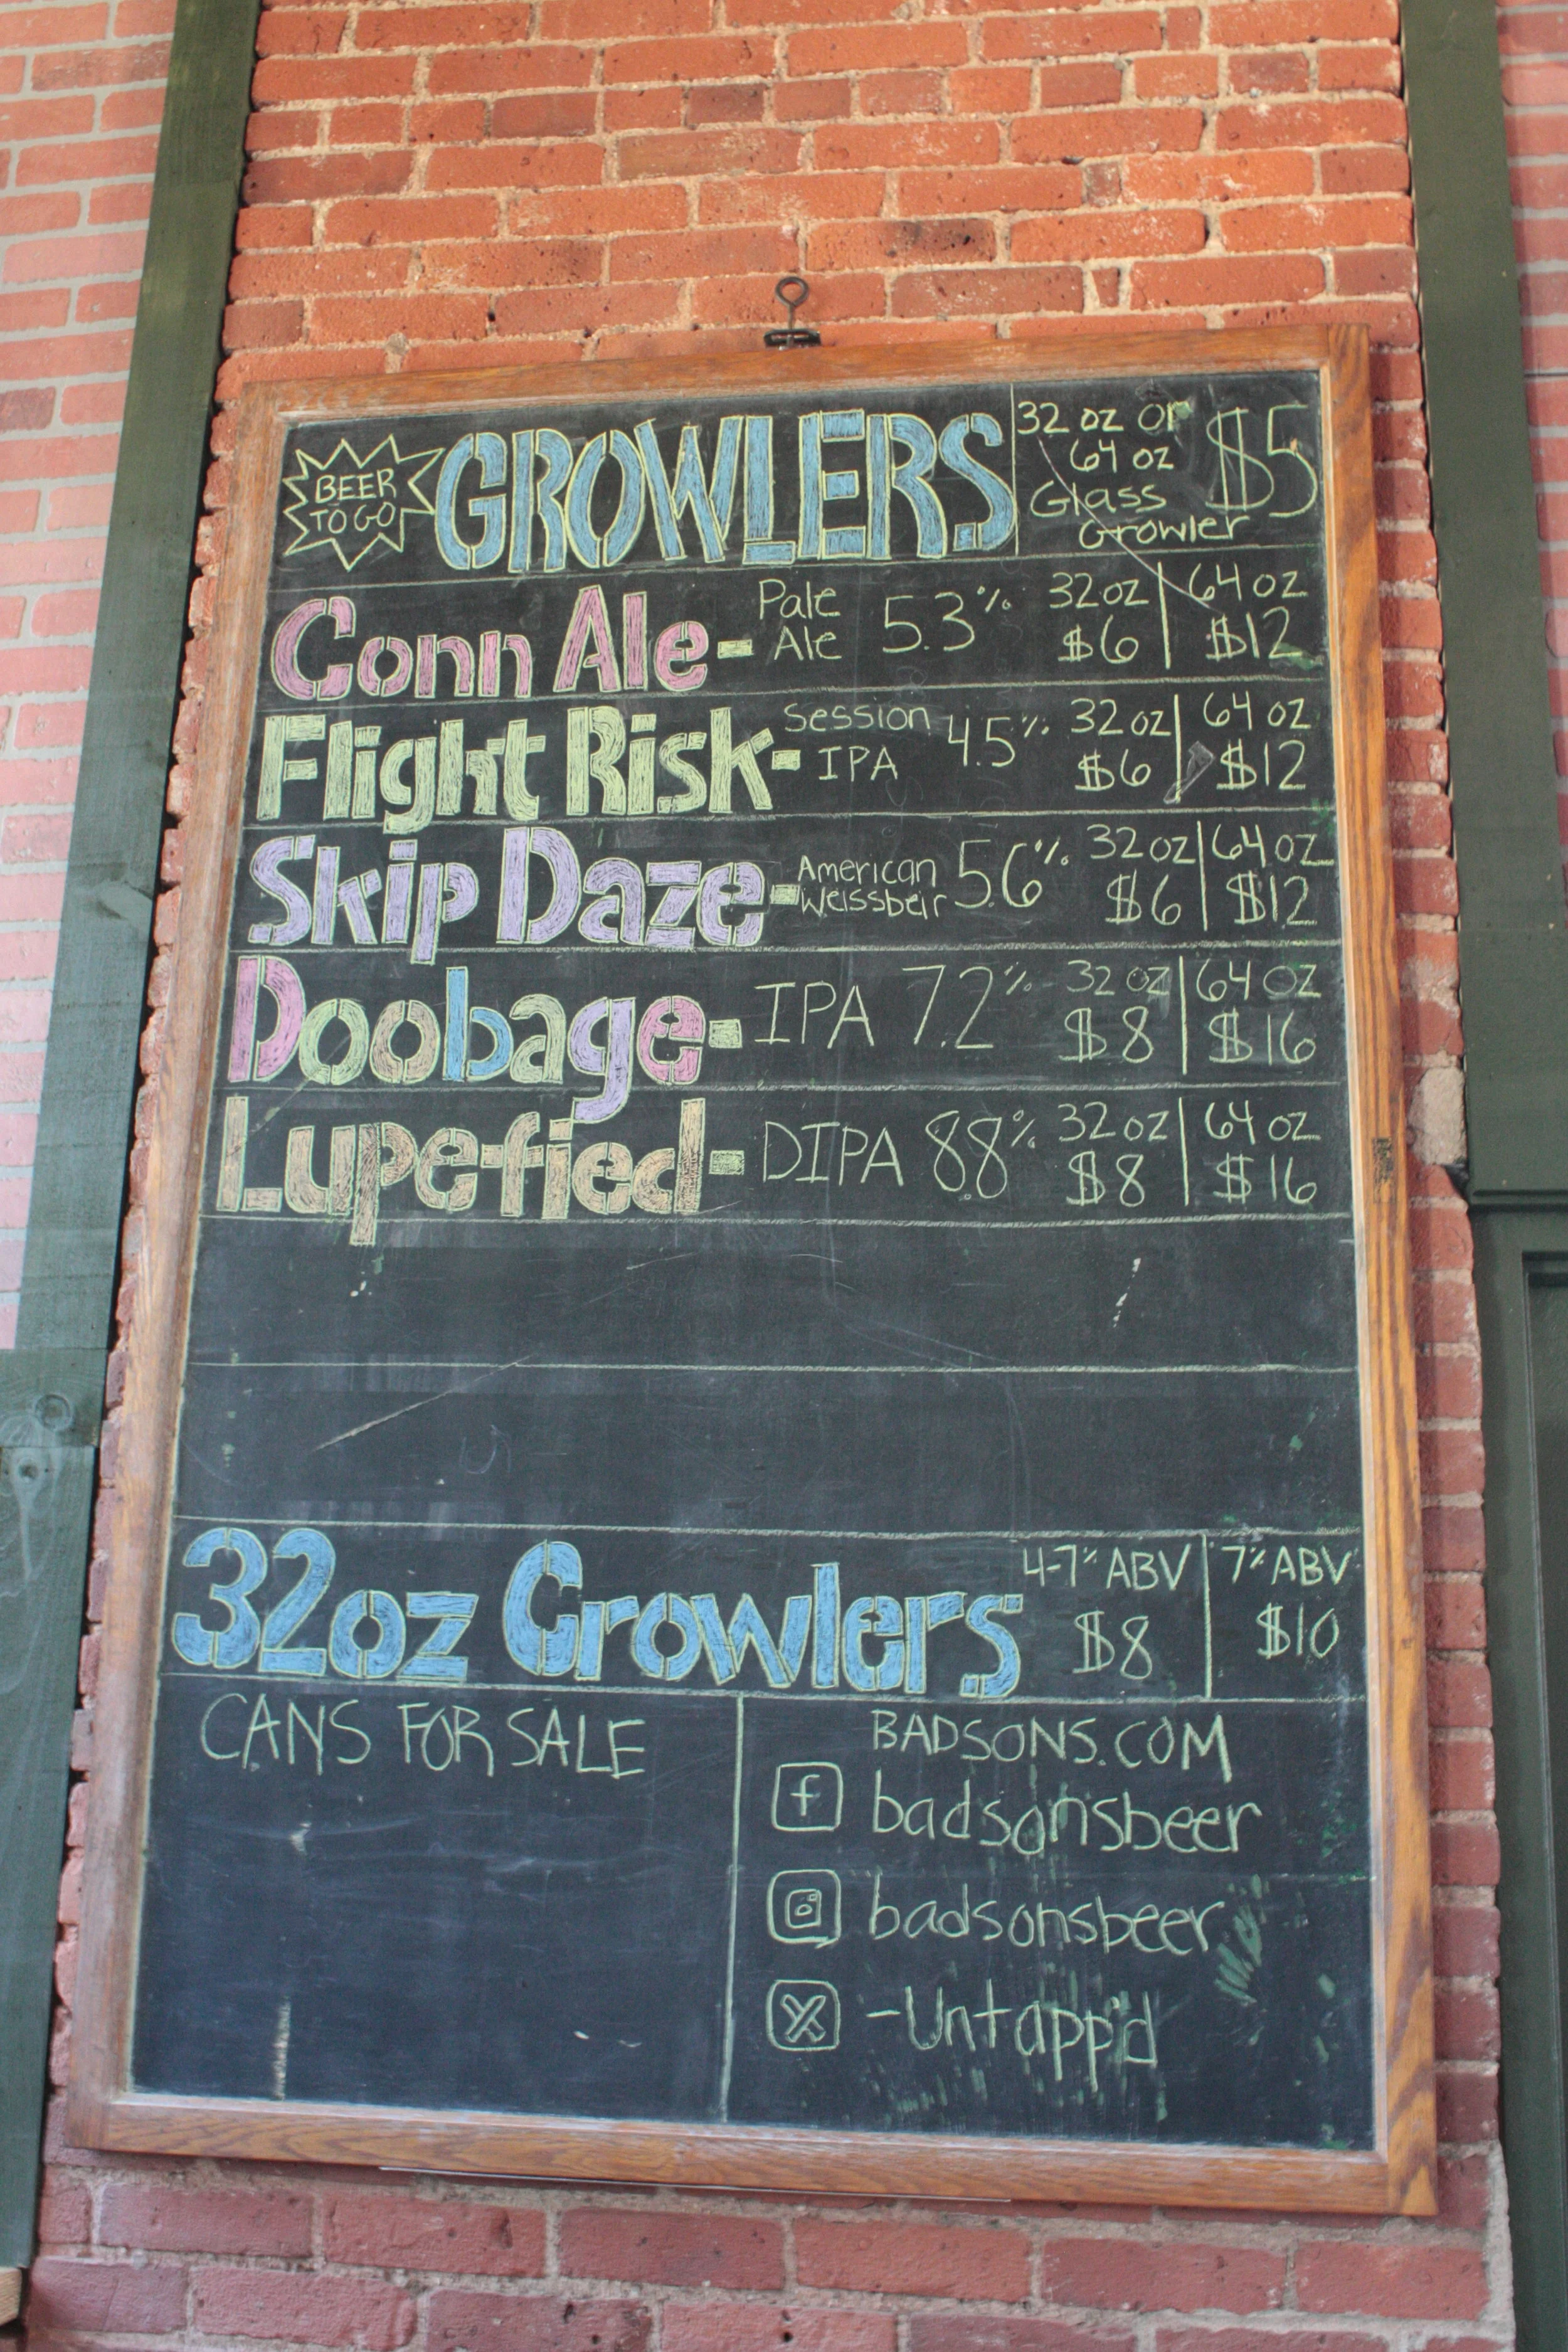 BEER
TO GO
GROWLERS
32 oz or
64 oz
Glass
Growler
$5
Conn Ale - Pale Ale 5.3% 32oz $6 | 64 oz $12
Flight Risk - Session IPA 4.5% 32 oz $6 | 64 oz $12
Skip Daze - American Weissbeir 5.6% 32 oz $6 | 64 oz $12
Doobage - IPA 7.2% 32 oz $8 | 64 oz $16
Lupe-fied - DIPA 8.8% 32 oz $8 | 64 oz $16
32oz Crowlers 4-7% ABV $8 | 7% ABV $10
CANS FOR SALE
BADSONS.COM
f badsonsbeer
badsonsbeer
-Untapp'd